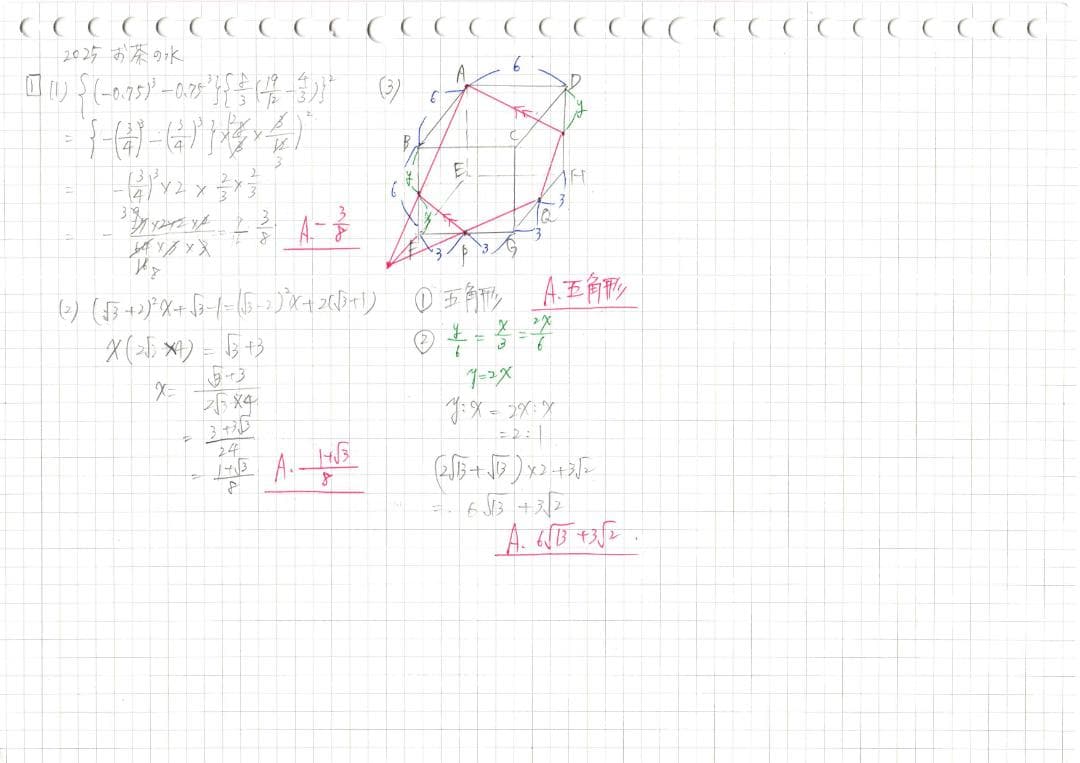 2025 お茶の水
1 (1) {(-0.75)³ - 0.75³}{8/3(19/12 - 4/3)}²
= {-(3/4)³ - (3/4)³} × (8/3 × 3/12)²
= -(3/4)³ × 2 × 2/3 × 2/3
3/8
A. -3/8
(2) (√3+2)²x+√3-1=(√3-2)²x+2(√3+1)
= √3+3
x=
= 3+3√3/24
= 1+√3/8
A. 1+√3/8
(3)
A 6 D
6 y
B C
y E H
6 x Q 3
F 3 P 3 G 3
① 五角形
A.五角形
② y/6 = x/3 = 2x/6
y=2x
y:x = 2x:x
= 2:1
(2√13+√13)×2+3√2
= 6√13+3√2
A. 6√13+3√2.